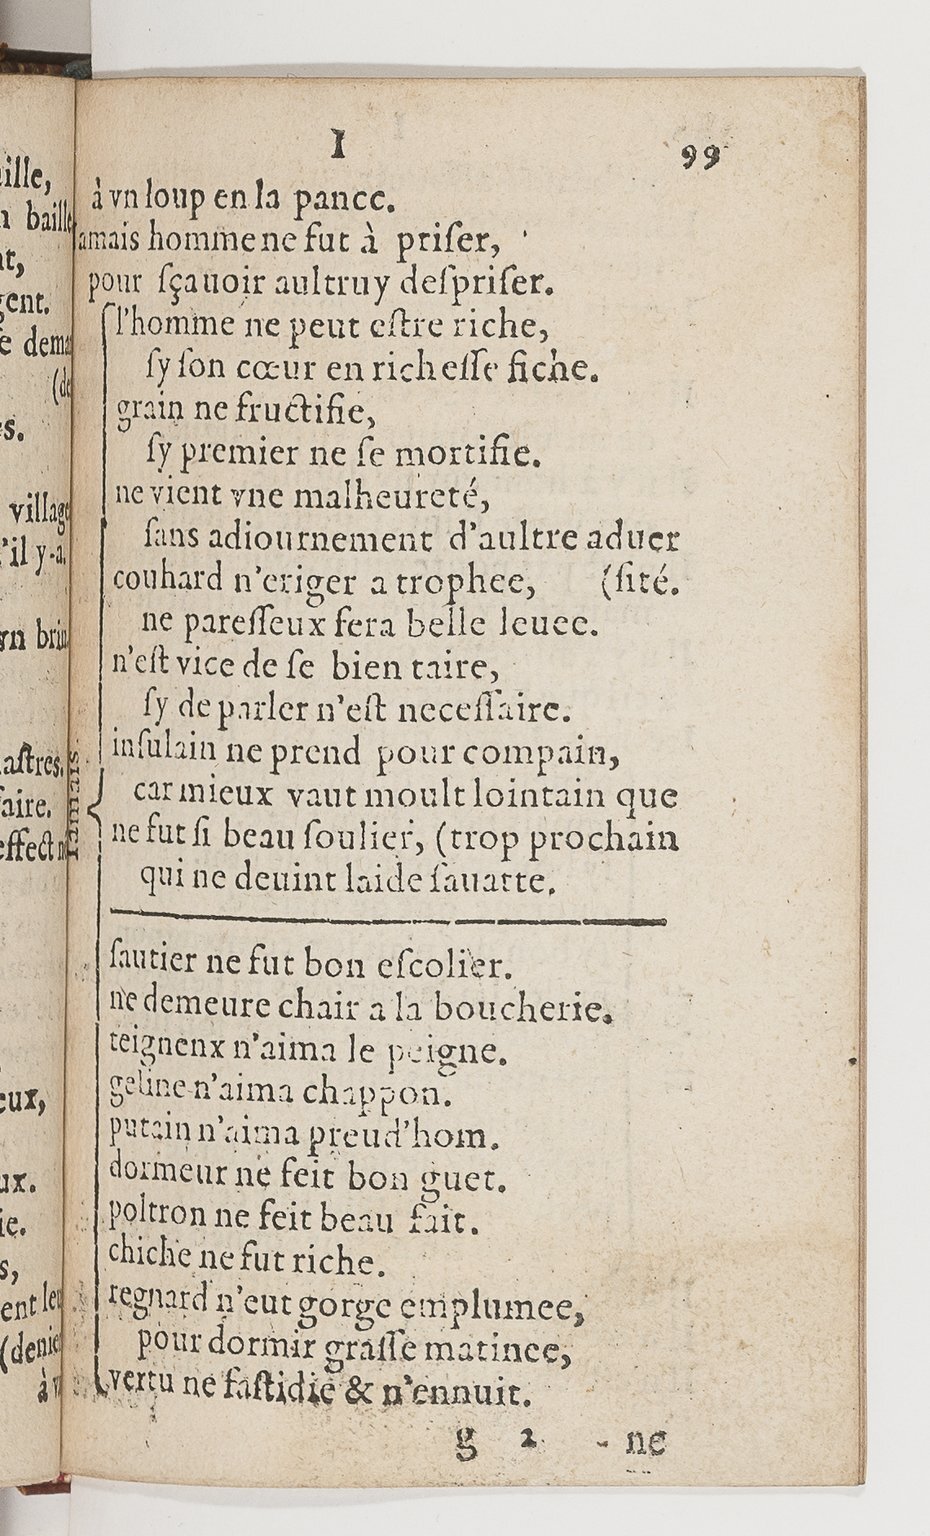 ille,
baille
nt,
gent.
e dema
(de
es.
village
'il y-a.
vn brin
astres.
faire.
effect n
eux,
ux.
ie.
s,
ent leu
(denie
à v
I 99
à vn loup en la pance.
amais homme ne fut à priſer,
pour ſçauoir aultruy deſpriſer.
Iamais
l'homme ne peut eſtre riche,
ſy ſon cœur en richeſſe fiche.
grain ne fructifie,
ſy premier ne ſe mortifie.
ne vient vne malheureté,
ſans adiournement d'aultre aduer
couhard n'eriger a trophee, (ſité.
ne pareſſeux fera belle leuee.
n'eſt vice de ſe bien taire,
ſy de parler n'eſt neceſſaire.
inſulain ne prend pour compain,
car mieux vaut moult lointain que
ne fut ſi beau ſoulier, (trop prochain
qui ne deuint laide ſauatte.
ſautier ne fut bon eſcolier.
ne demeure chair a la boucherie.
teignenx n'aima le peigne.
geline n'aima chappon.
putain n'aima preud'hom.
dormeur ne feit bon guet.
poltron ne feit beau fait.
chiche ne fut riche.
regnard n'eut gorge emplumee,
pour dormir graſſe matinee,
vertu ne faſtidie & n'ennuit.
g 2 ne